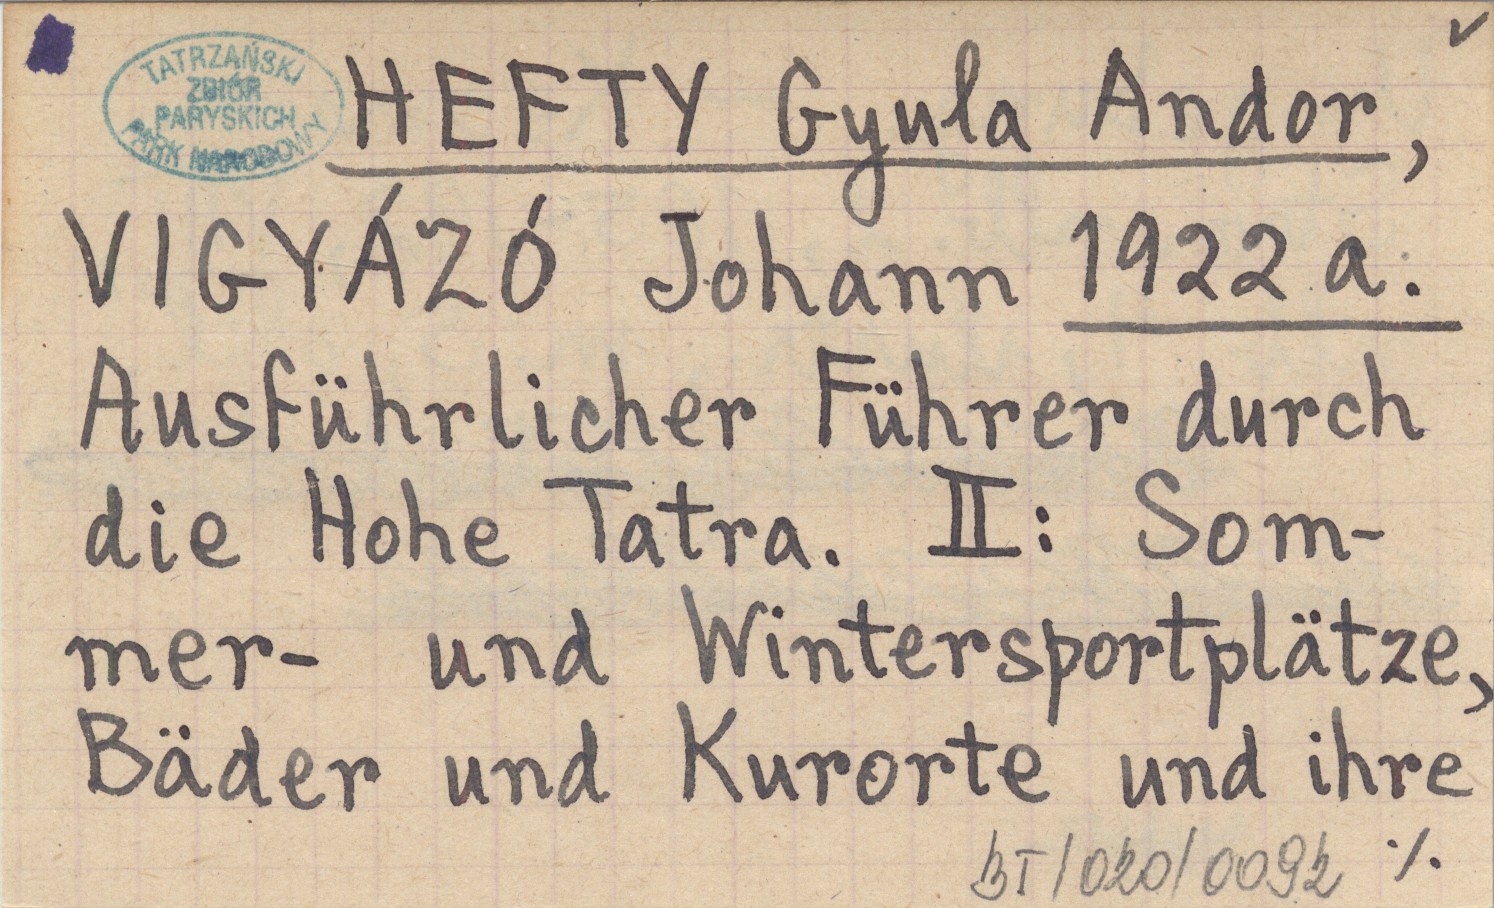 TATRZAŃSKI
ZBIÓR
PARYSKICH
PARK NARODOWY
HEFTY Gyula Andor,
VIGYÁZÓ Johann 1922 a.
Ausführlicher Führer durch
die Hohe Tatra. II: Som-
mer- und Wintersportplätze,
Bäder und Kurorte und ihre
BT/020/0092 ·/.